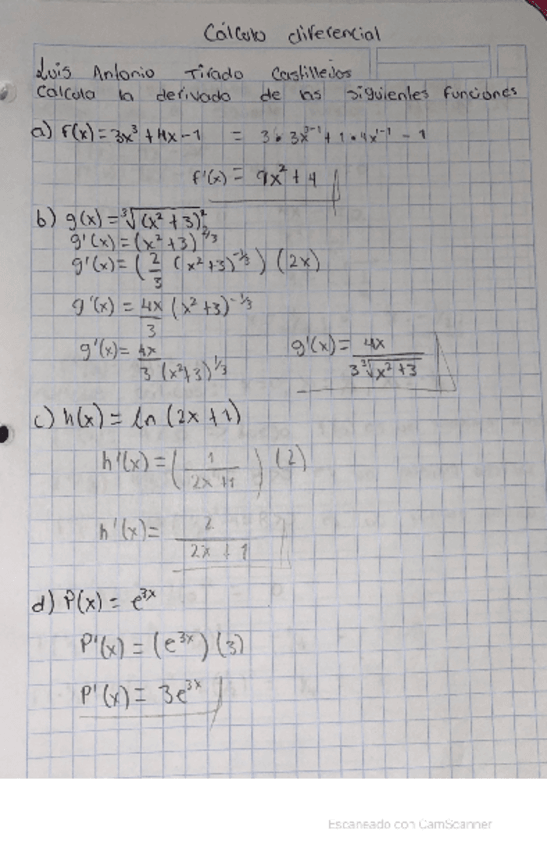 Cálculo diferencial
Luis Antonio Tirado Castillejos
Calcula la derivada de las siguientes funciones
a) f(x) = 3x³ + 4x - 1 = 3 • 3x³⁻¹ + 1 • 4x¹⁻¹ - 1
f'(x) = 9x² + 4
b) g(x) = ³√(x² + 3)²
g'(x) = (x² + 3)^2/3
g'(x) = (2/3 (x² + 3)^-1/3) (2x)
g'(x) = 4x/3 (x² + 3)^-1/3
g'(x) = 4x / 3 (x² + 3)^1/3 g'(x) = 4x / 3 ³√x² + 3
c) h(x) = ln (2x + 1)
h'(x) = (1 / 2x + 1) (2)
h'(x) = 2 / 2x + 1
d) P(x) = e³ˣ
P'(x) = (e³ˣ) (3)
P'(x) = 3e³ˣ
Escaneado con CamScanner